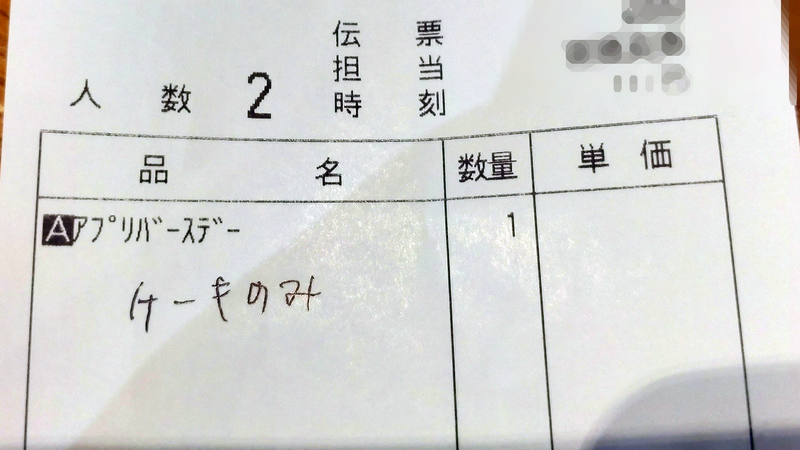 伝票
担当
人数 2 時刻
品名 数量 単価
Aｱﾌﾟﾘﾊﾞｰｽﾃﾞｰ 1
ケーキのみ